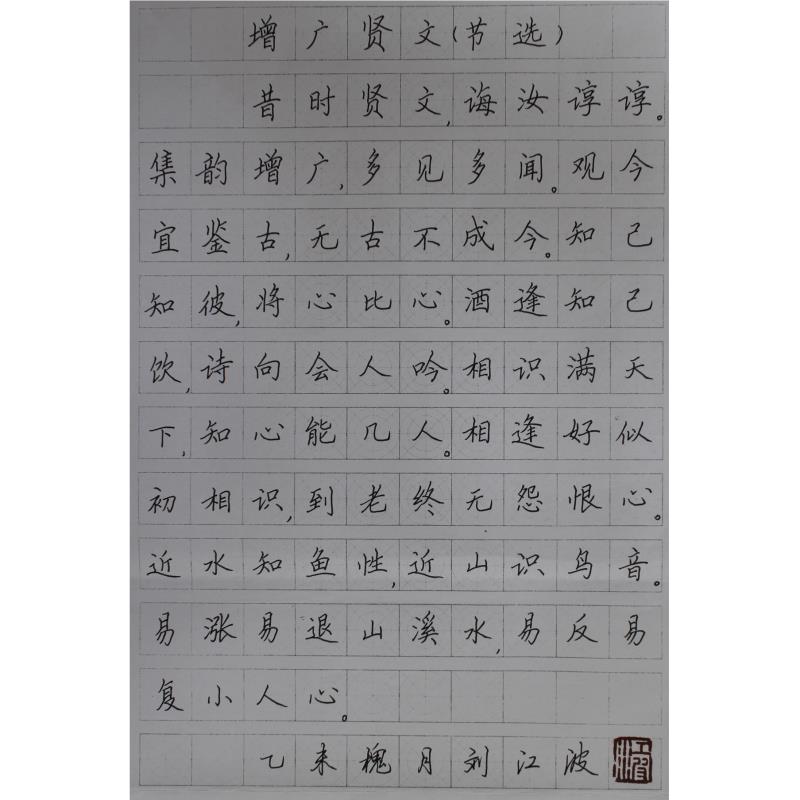 增广贤文(节选)
昔时贤文,诲汝谆谆。
集韵增广,多见多闻。观今
宜鉴古,无古不成今。知己
知彼,将心比心。酒逢知己
饮,诗向会人吟。相识满天
下,知心能几人。相逢好似
初相识,到老终无怨恨心。
近水知鱼性,近山识鸟音。
易涨易退山溪水,易反易
复小人心。
乙未槐月刘江波